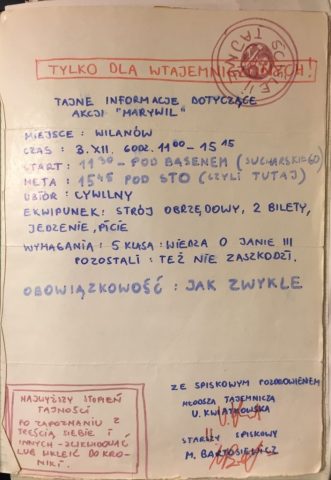 ŚCIŚLE TAJNE
TYLKO DLA WTAJEMNICZONYCH!
TAJNE INFORMACJE DOTYCZĄCE
AKCJI "MARYWIL"
MIEJSCE : WILANÓW
CZAS : 3. XII. GODZ. 11⁰⁰ - 15¹⁵
START : 11³⁰ - POD BASENEM (SUCHARSKIEGO)
META : 15⁴⁵ POD STO (CZYLI TUTAJ)
UBIÓR : CYWILNY
EKWIPUNEK : STRÓJ OBRZĘDOWY, 2 BILETY,
JEDZENIE, PICIE
WYMAGANIA : 5 KLASA : WIEDZA O JANIE III
POZOSTALI : TEŻ NIE ZASZKODZI.
OBOWIĄZKOWOŚĆ : JAK ZWYKLE
ZE SPISKOWYM POZDROWIENIEM
MŁODSZA TAJEMNICZA
U. KWIATKOWSKA
STARSZY SPISKOWY
M. BARTOSIEWICZ
NAJWYŻSZY STOPIEŃ
TAJNOŚCI
PO ZAPOZNANIU Z
TREŚCIĄ SIEBIE I
INNYCH - ZLIKWIDOWAĆ
LUB WKLEIĆ DO KRO-
NIKI.